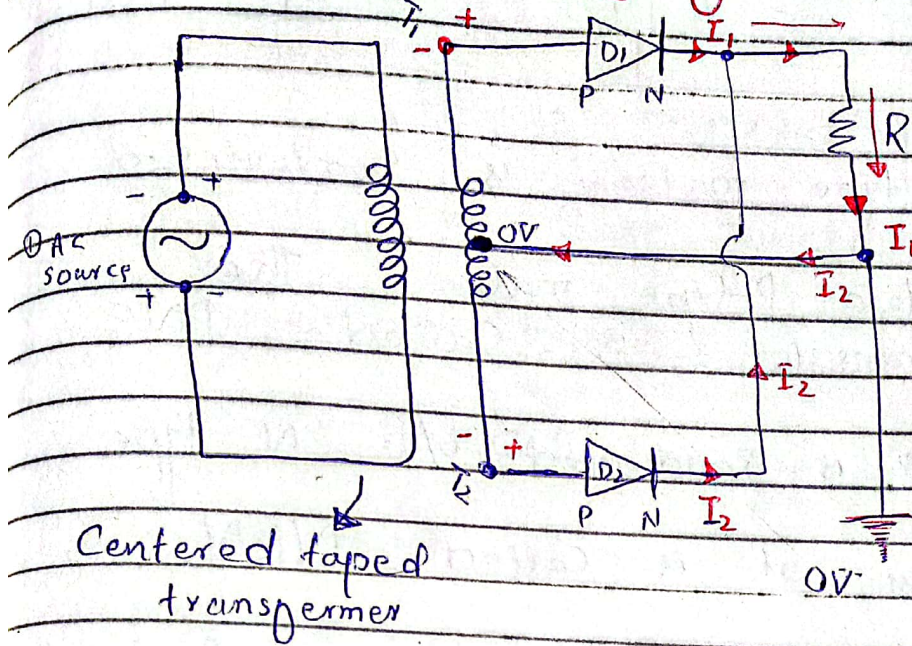 T₁ + -
D₁
P N
I₁
R
- +
AC
source
+ -
OV
I₂
I₂
- +
T₂
D₂
P N
I₂
Centered taped
transfermer
OV